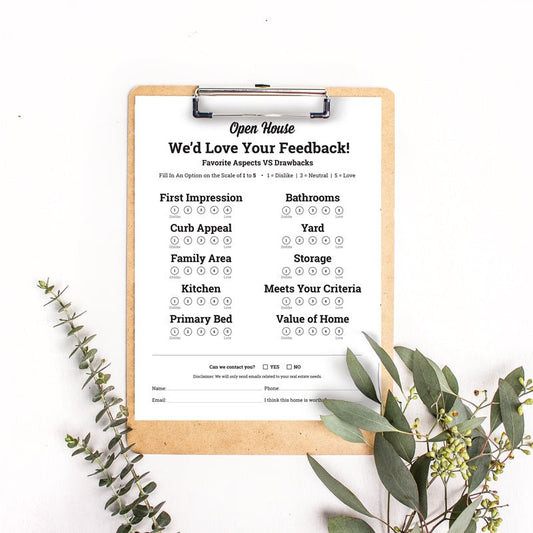 Open House
We'd Love Your Feedback!
Favorite Aspects VS Drawbacks
Fill In An Option on the Scale of 1 to 5 • 1 = Dislike | 3 = Neutral | 5 = Love
First Impression
1 2 3 4 5
Dislike Love
Curb Appeal
1 2 3 4 5
Dislike Love
Family Area
1 2 3 4 5
Dislike Love
Kitchen
1 2 3 4 5
Dislike Love
Primary Bed
1 2 3 4 5
Dislike Love
Bathrooms
1 2 3 4 5
Dislike Love
Yard
1 2 3 4 5
Dislike Love
Storage
1 2 3 4 5
Dislike Love
Meets Your Criteria
1 2 3 4 5
Dislike Love
Value of Home
1 2 3 4 5
Dislike Love
Can we contact you? YES NO
Disclaimer: We will only send emails related to your real estate needs.
Name: Phone:
Email: I think this home is worth: